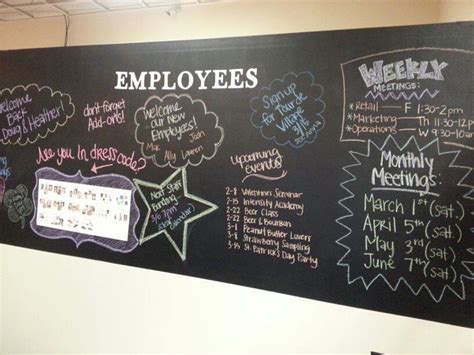 EMPLOYEES
Welcome
Back
Doug & Heather!
don't forget
Add-on's!
Welcome
our New
Employees!
Max Josh
Ally Lauren
Sign up
for Tour de
Village
3/15
Are you in dresscode?
Next Staff
Bonding
3/6 7pm
upcoming
events
2-8 Valentines Seminar
2-15 Intensity Academy
2-22 Beer Class
2-22 Beer & Bourbon
3-1 Peanut Butter Lovers
3-8 Strawberry Sampling
3-15 St. Patrick's Day Party
Weekly
Meetings:
* Retail F 1:30-2pm
* Marketing Th
* Operations W
Monthly
Meetings:
March 1st (Sat.)
April 5th (Sat.)
May 3rd (Sat.)
June 7th (Sat.)